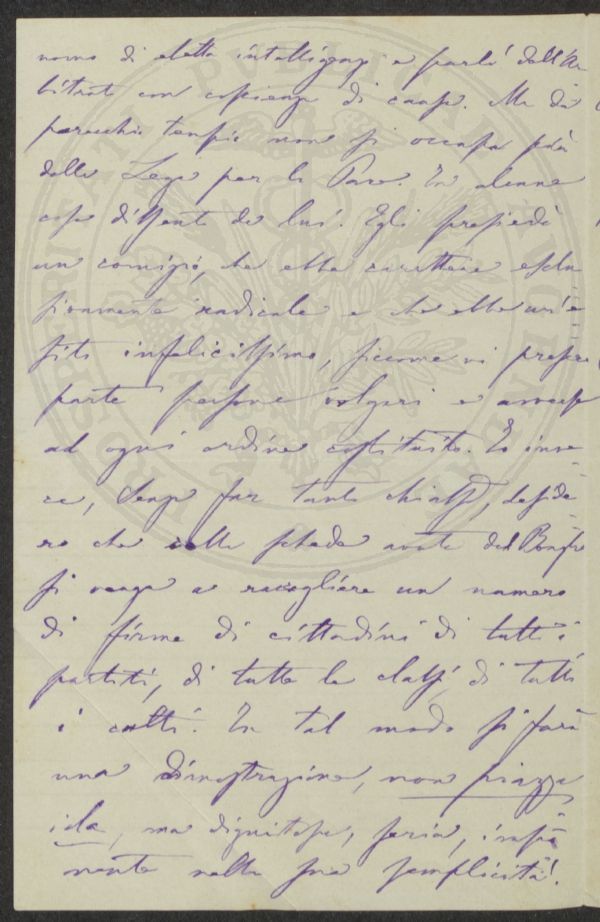 uomo di eletta intelligenza e parlò dell'Ar
bitrato con coscienza di causa. Ma da
parecchio tempo non si occupa più
della Lega per la Pace. In alcune
cose dissento da lui. Egli presiedè
un comizio, che ebbe carattere esclu
sivamente radicale e che ebbe un'e
sito infelicissimo, siccome vi presero
parte persone volgari e avverse
ad ogni ordine costituito. Io inve-
ce, senza far tanto chiasso, deside-
ro che colle schede avute dal
si venga a raccogliere un numero
di firme di cittadini di tutti i
partiti, di tutte le classi, di tutti
i culti. In tal modo si farà
una dimostrazione, non piazza
iola, ma dignitosa, seria, impo
nente nella sua semplicità!
PROSPERITATI PUBLICAE AUGENDAE